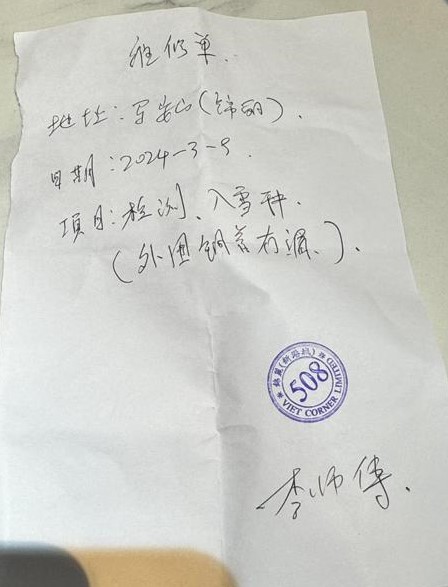 维修单.
地址:写安山(锦丽).
日期:2024-3-9.
項目:检测、入雪种.
(外围铜管有漏、).
508
VIET CORNER LIMITED
李师傅.